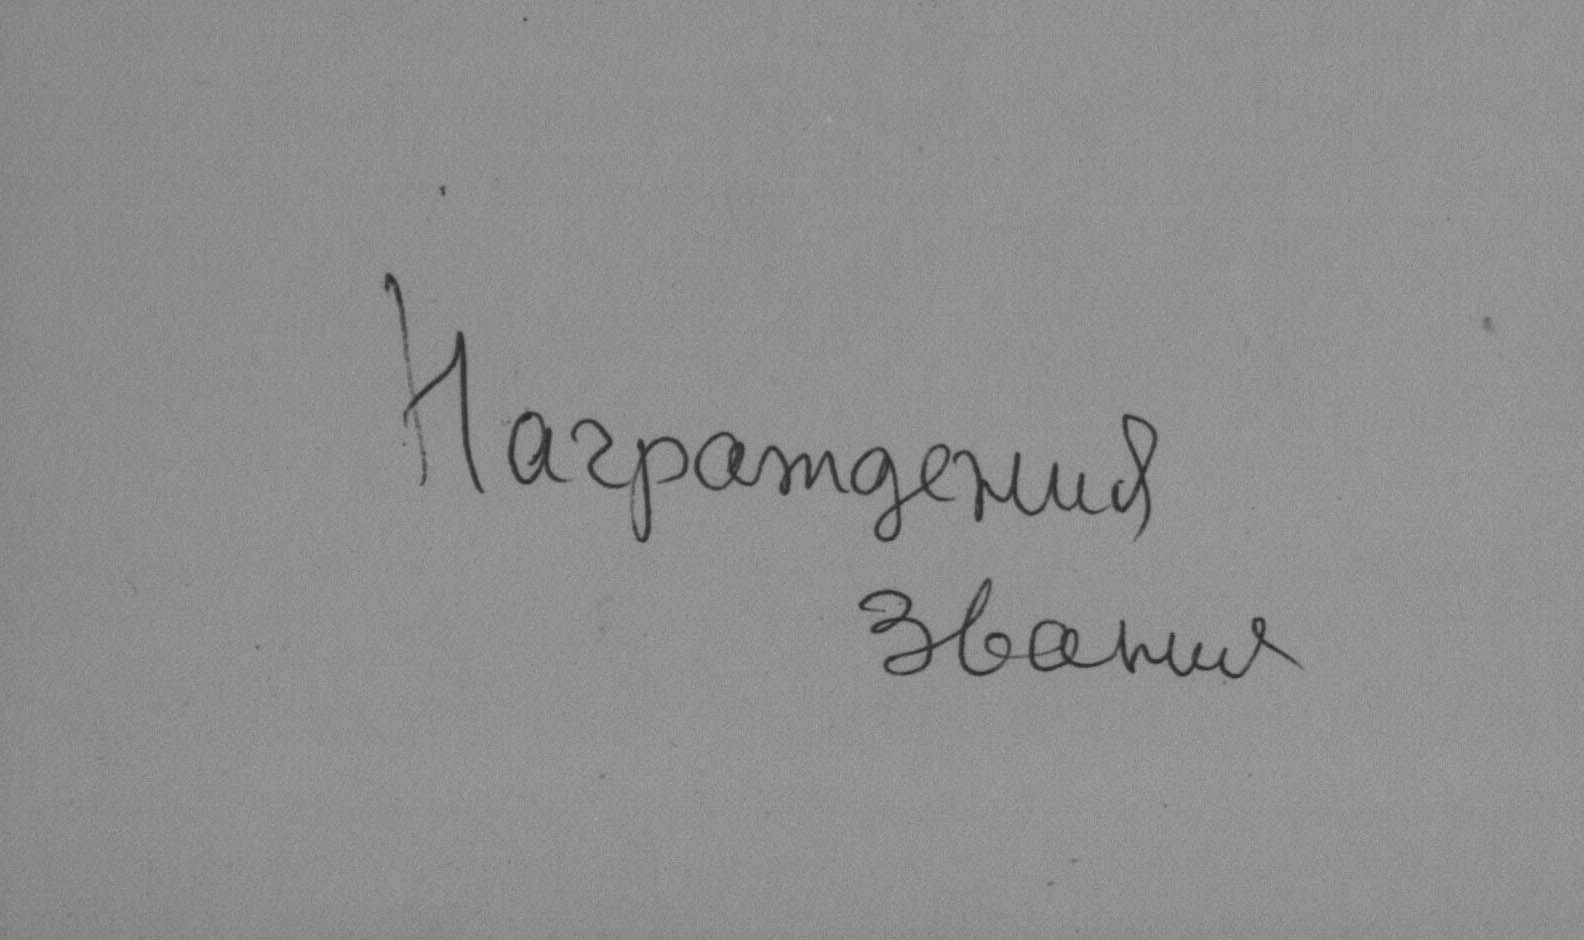 Награждения
звания